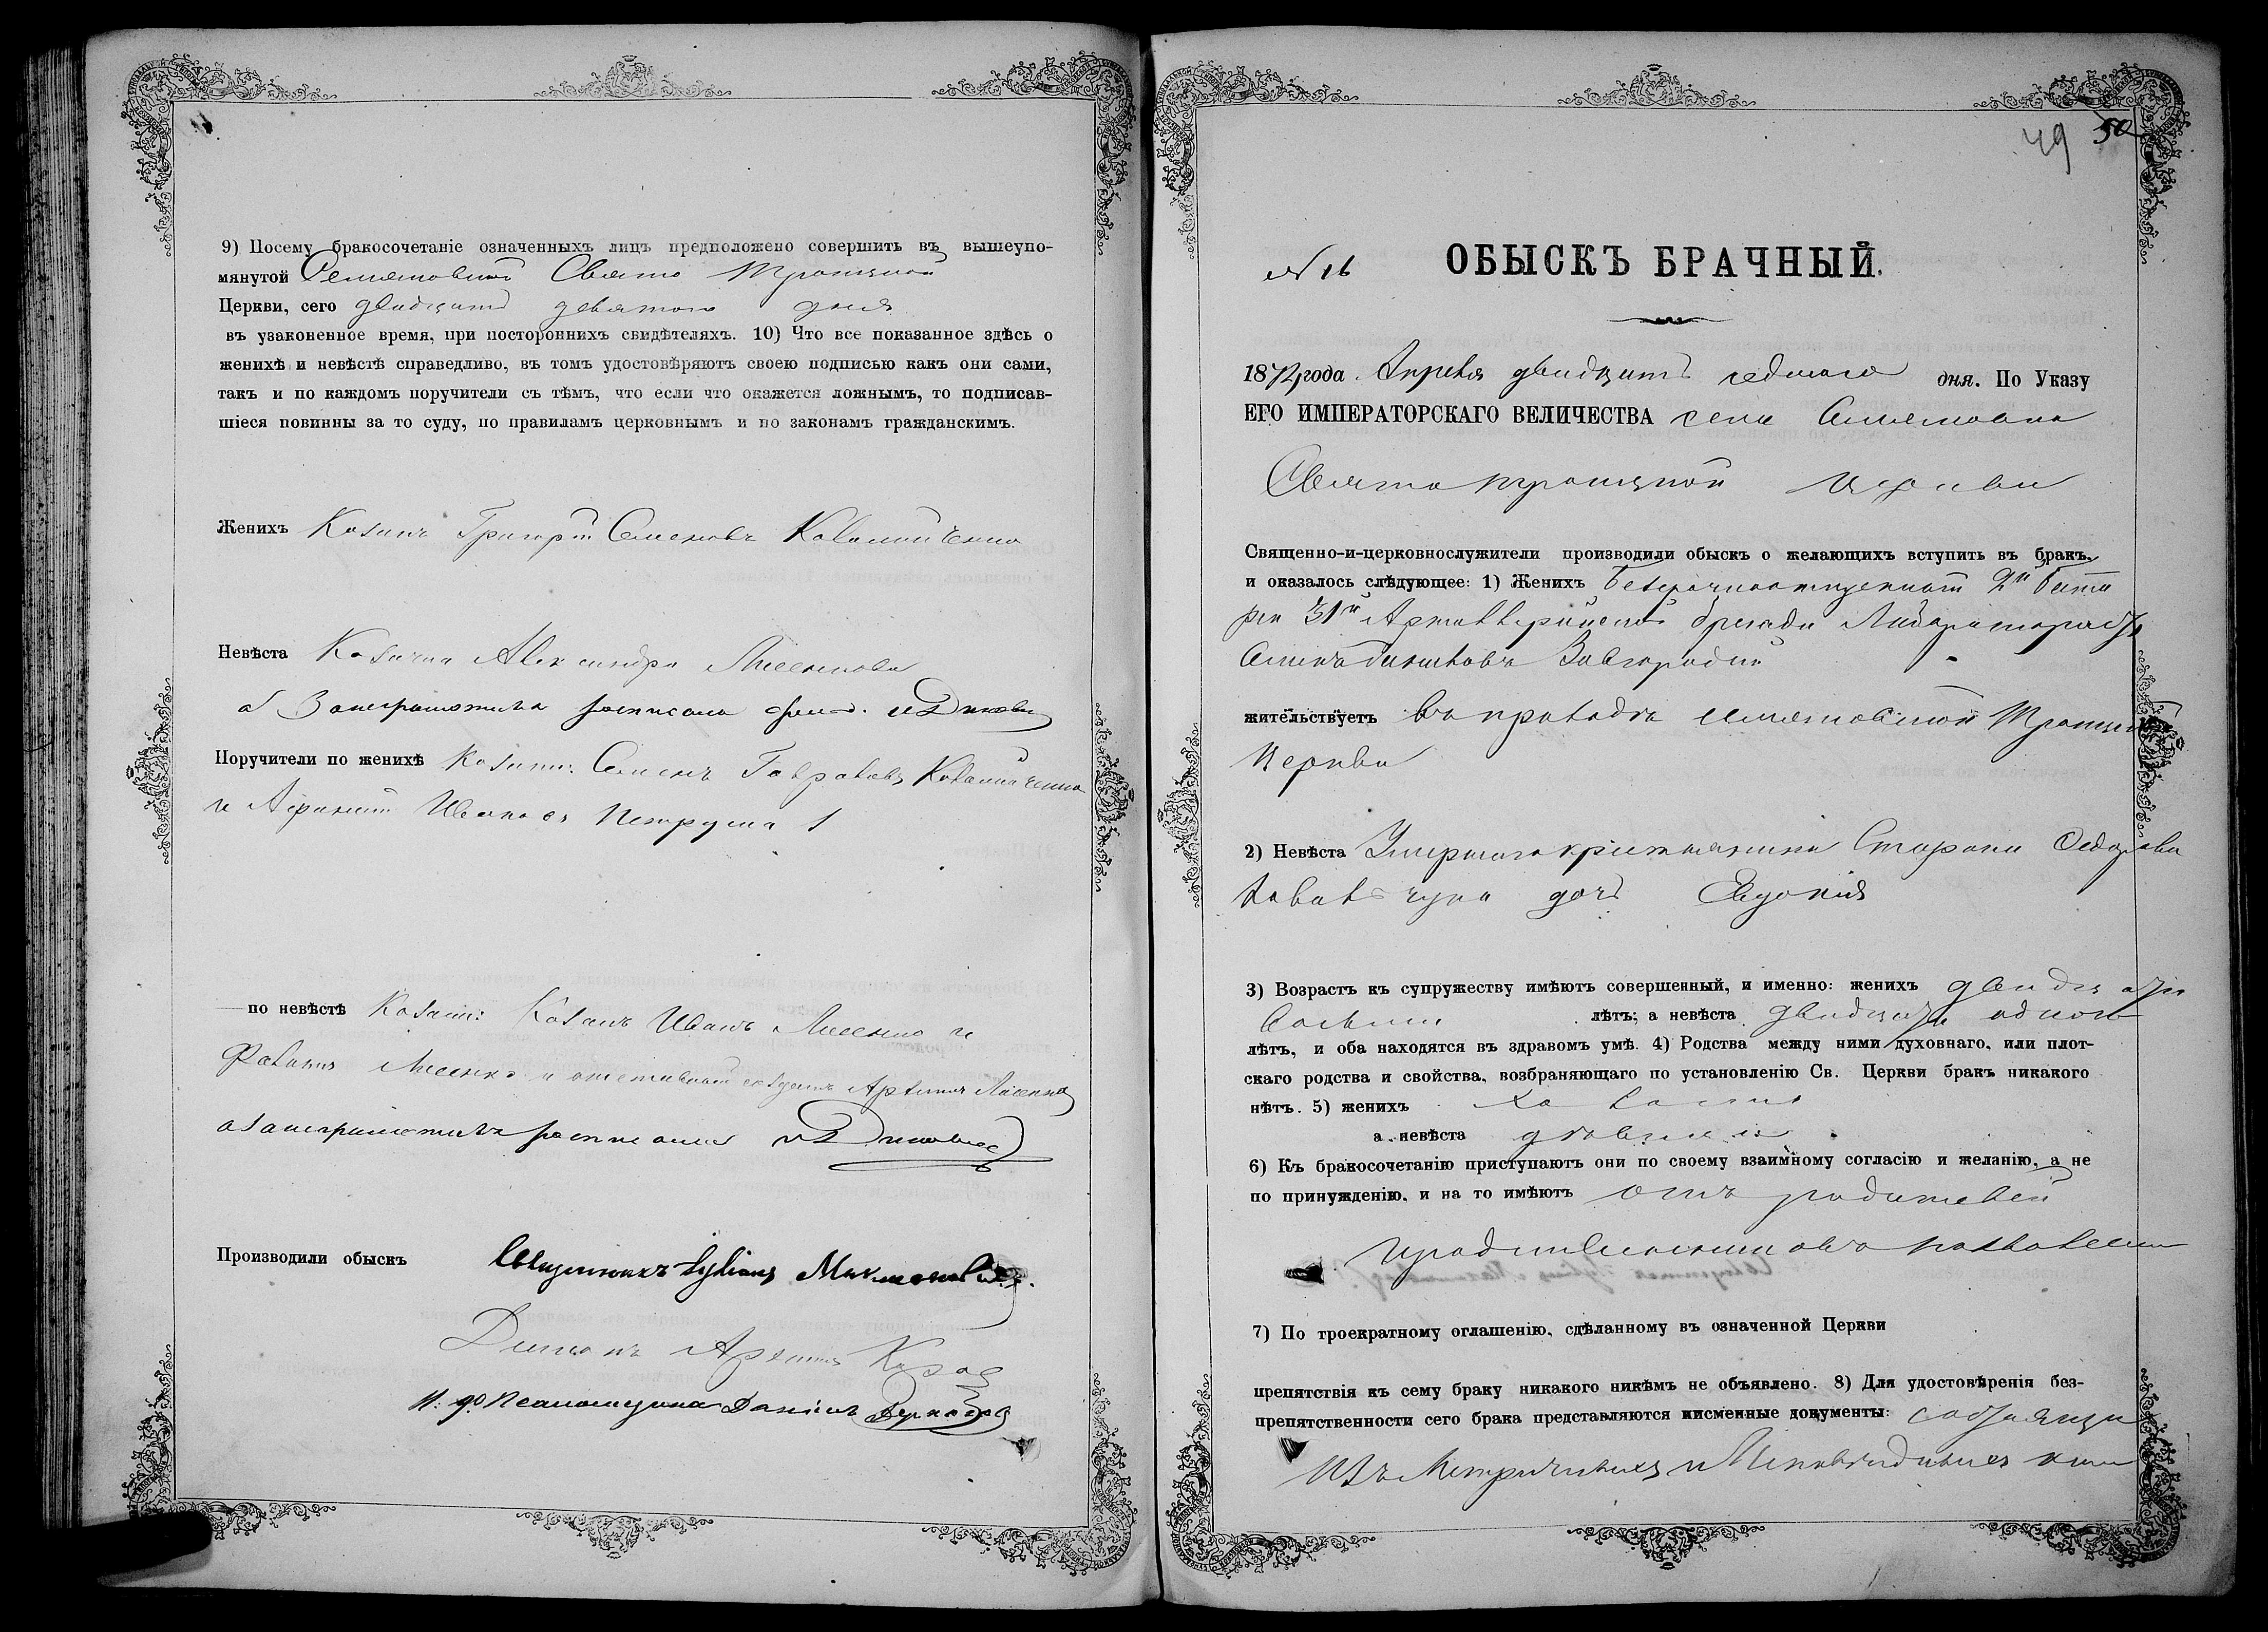 9) Посему бракосочетаніе означенныхъ лицъ предположено совершить въ вышеупо-
мянутой Семеновской Свято Троицкой
Церкви, сего двадцать девятого дня
въ узаконенное время, при постороннихъ свидѣтеляхъ. 10) Что все показанное здѣсь о
женихѣ и невѣстѣ справедливо, въ томъ удостовѣряютъ своею подписью какъ они сами,
такъ и по каждомъ поручители съ тѣмъ, что если что окажется ложнымъ, то подписав-
шіеся повинны за то суду, по правиламъ церковнымъ и по законамъ гражданскимъ.
Женихъ Козакъ Григорій Семеновъ
Невѣста Козачка Александра Лисенкова
Поручители по женихѣ Козаки: Семенъ
и Иванъ Петруша
по невѣстѣ Козаки: Козакъ Иванъ Лисенко и
Лисенко и отставной солдатъ Артемъ Лисенко
Производили обыскъ Священникъ
Диконъ
и. д. Псаломщика Даніилъ
49 50
N 16 ОБЫСКЪ БРАЧНЫЙ.
1872 года Апреля двадцать седмого дня. По Указу
ЕГО ИМПЕРАТОРСКАГО ВЕЛИЧЕСТВА села Семеновки
Свято Троицкой Церкви
Священно-и-церковнослужители производили обыскъ о желающихъ вступить въ бракъ,
и оказалось слѣдующее: 1) Женихъ Безсрочноотпускной 2й бата
реи 31й Артиллерійской бригады Лаборатористъ
Завгородній
жительствуетъ въ приходѣ Семеновской Троицкой
Церкви
2) Невѣста Умершаго крестьянина Федорова
дочь Евдокія
3) Возрастъ къ супружеству имѣютъ совершенный, и именно: женихъ двадцати
восьми лѣтъ; а невѣста двадцати одного
лѣтъ, и оба находятся въ здравомъ умѣ. 4) Родства между ними духовнаго, или плот-
скаго родства и свойства, возбраняющаго по установленію Св. Церкви бракъ никакого
нѣтъ. 5) женихъ холостъ
а невѣста девица
6) Къ бракосочетанію приступаютъ они по своему взаимному согласію и желанію, а не
по принужденію, и на то имѣютъ отъ родителей
позволеніе
7) По троекратному оглашенію, сдѣланному въ означенной Церкви
препятствія къ сему браку никакого никѣмъ не объявлено. 8) Для удостовѣренія без-
препятственности сего брака представляются письменные документы:
изъ Метрическихъ и Исповѣдныхъ книг